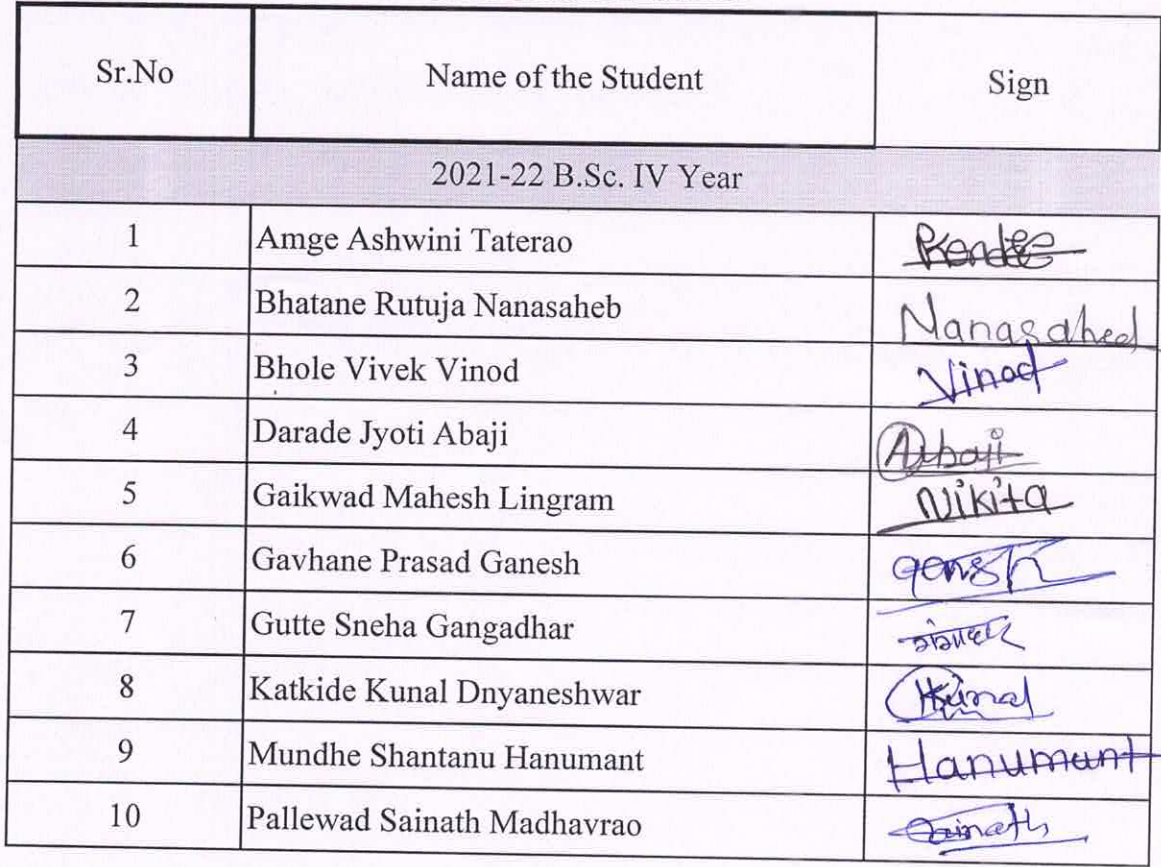 Sr.No Name of the Student Sign
2021-22 B.Sc. IV Year
1 Amge Ashwini Taterao
2 Bhatane Rutuja Nanasaheb Nanasaheb
3 Bhole Vivek Vinod Vinod
4 Darade Jyoti Abaji Abaji
5 Gaikwad Mahesh Lingram Nikita
6 Gavhane Prasad Ganesh
7 Gutte Sneha Gangadhar गंगाधर
8 Katkide Kunal Dnyaneshwar Kunal
9 Mundhe Shantanu Hanumant Hanumant
10 Pallewad Sainath Madhavrao Sainath